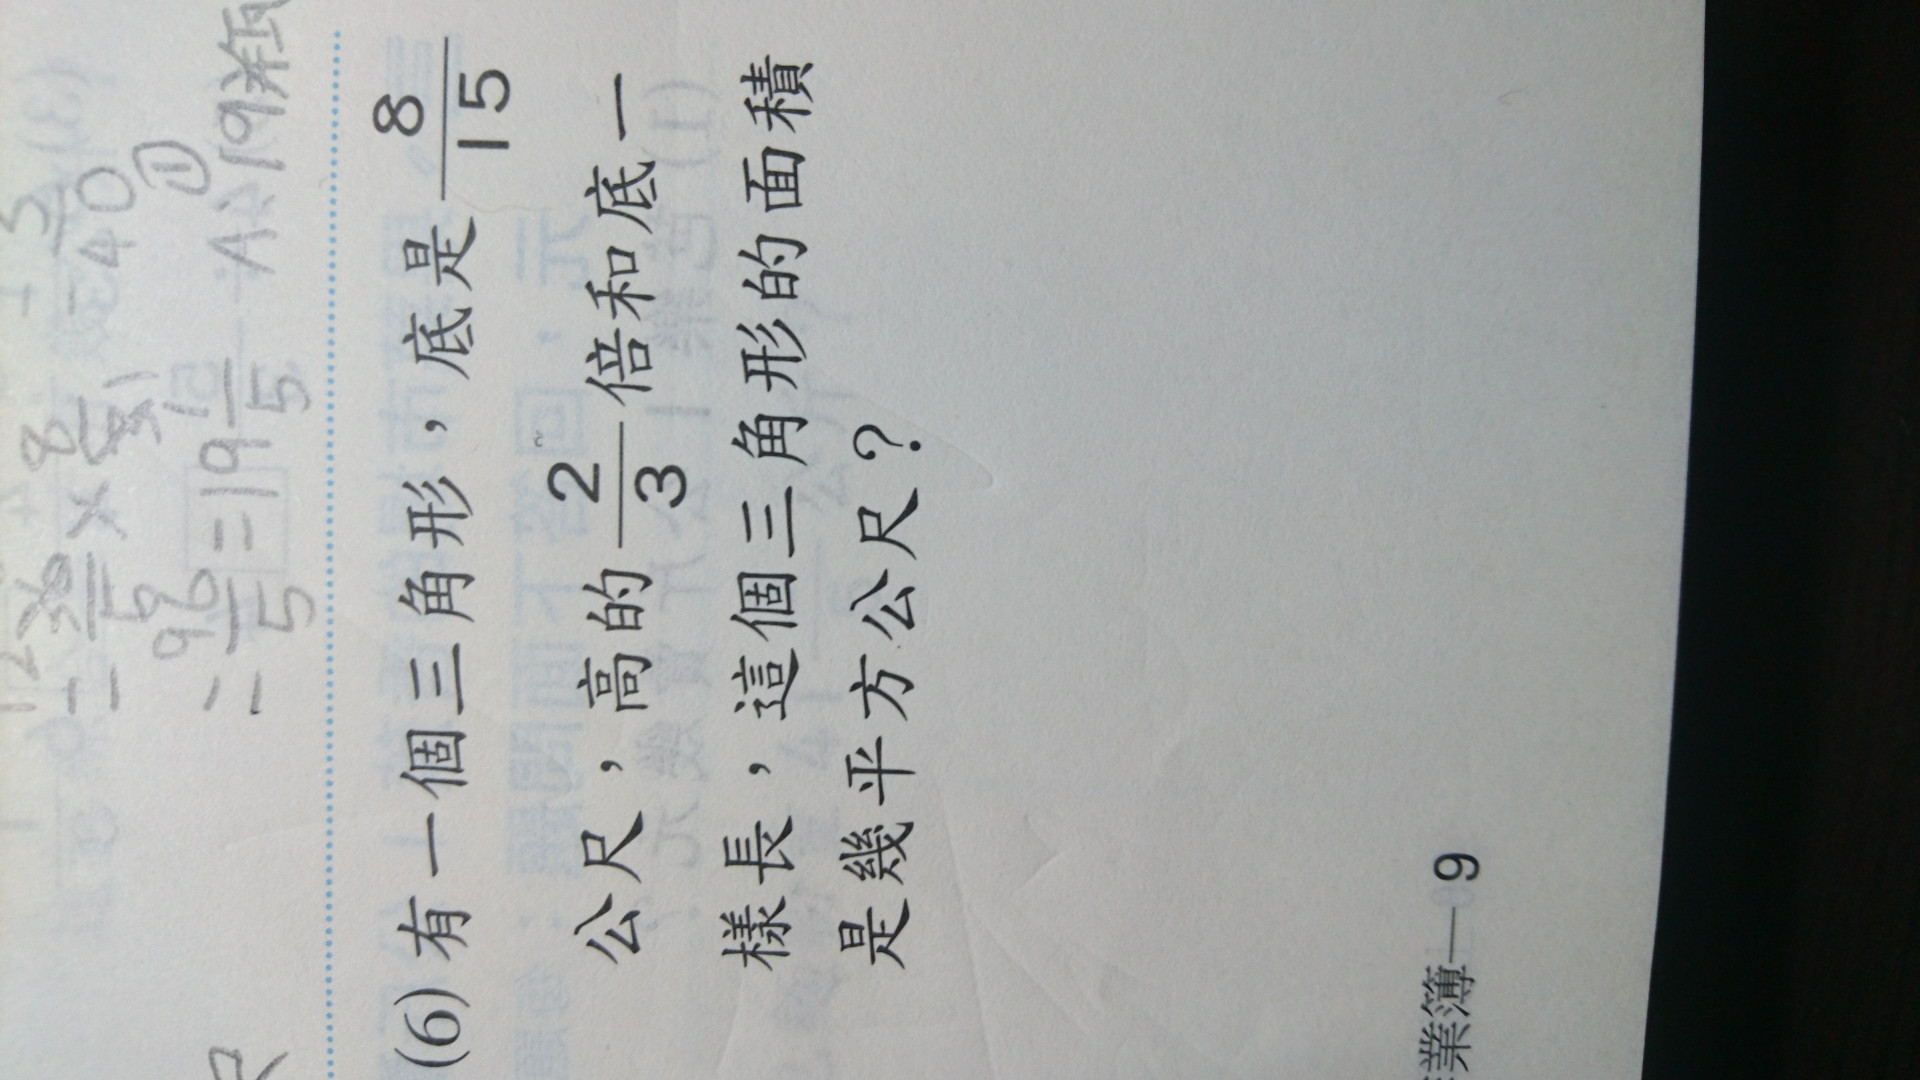 = 96/5 = 19 1/5 A: 19瓶
(6) 有一個三角形，底是 8/15
公尺，高的 2/3 倍和底一
樣長，這個三角形的面積
是幾平方公尺？
業簿—9